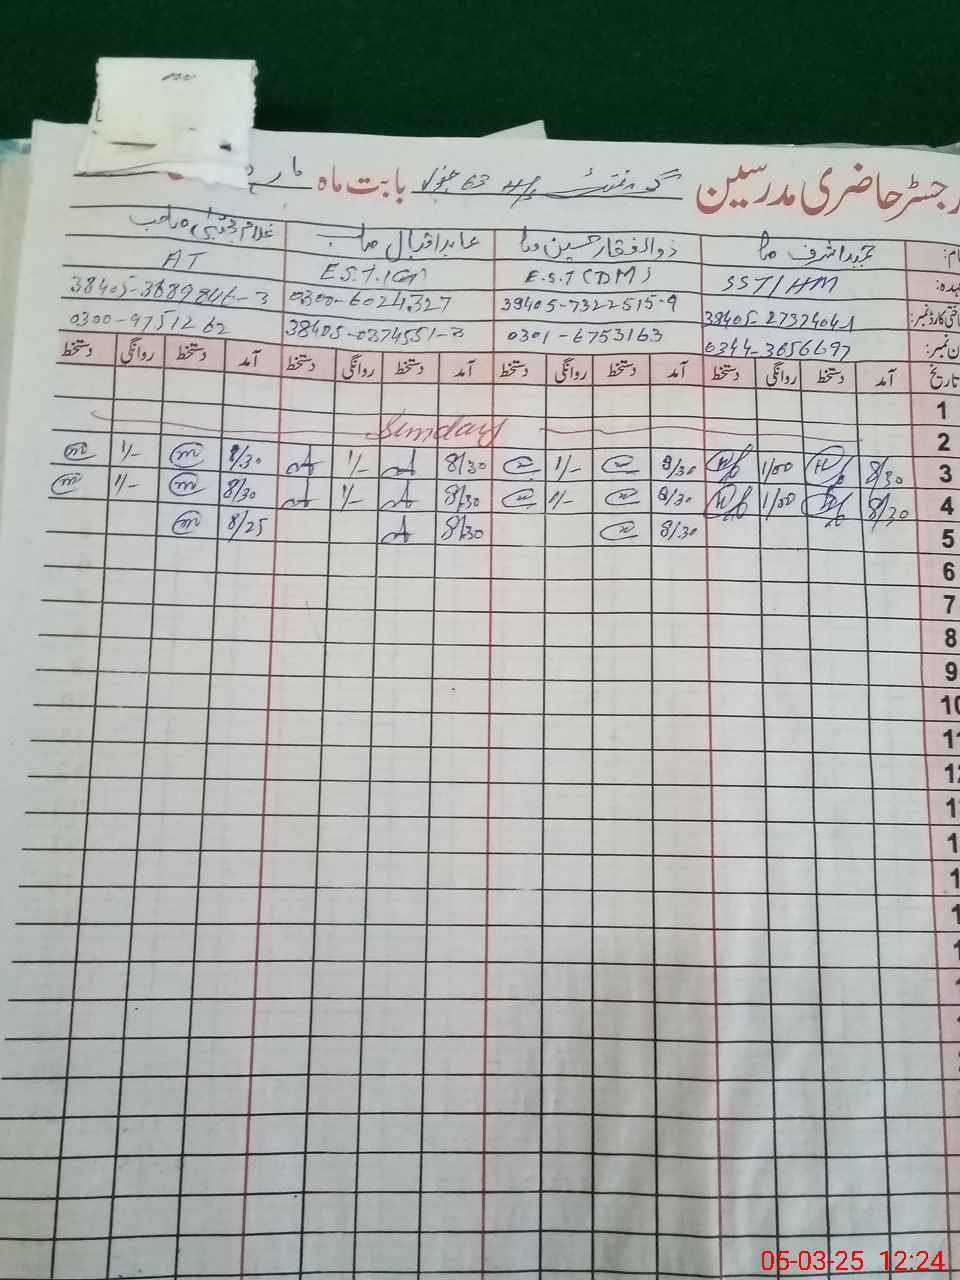 رجسٹر حاضری مدرسین گ ہائی سکول 63 جنوبی بابت ماہ مارچ
نام: محمد اشرف صاحب ذوالفقار حسین صاحب عابد اقبال صاحب غلام مجتبیٰ صاحب
عہدہ: SST/HM E.S.T (DM) E.S.T.(G) AT
شناختی کارڈ نمبر: 38405-2737404-1 39405-7322515-9 0300-6024327 38405-3689846-3
فون نمبر: 0344-3656697 0301-6753163 38405-0374551-3 0300-9751262
تاریخ آمد دستخط روانگی دستخط آمد دستخط روانگی دستخط آمد دستخط روانگی دستخط آمد دستخط روانگی دستخط
1
2 Sunday
3 8/30 1/00 8/30 1/- 8/30 1/- 8/30 1/-
4 8/30 1/00 8/30 1/- 8/30 1/- 8/30 1/-
5 8/30 8/30 8/25
6
7
8
9
10
05-03-25 12:24